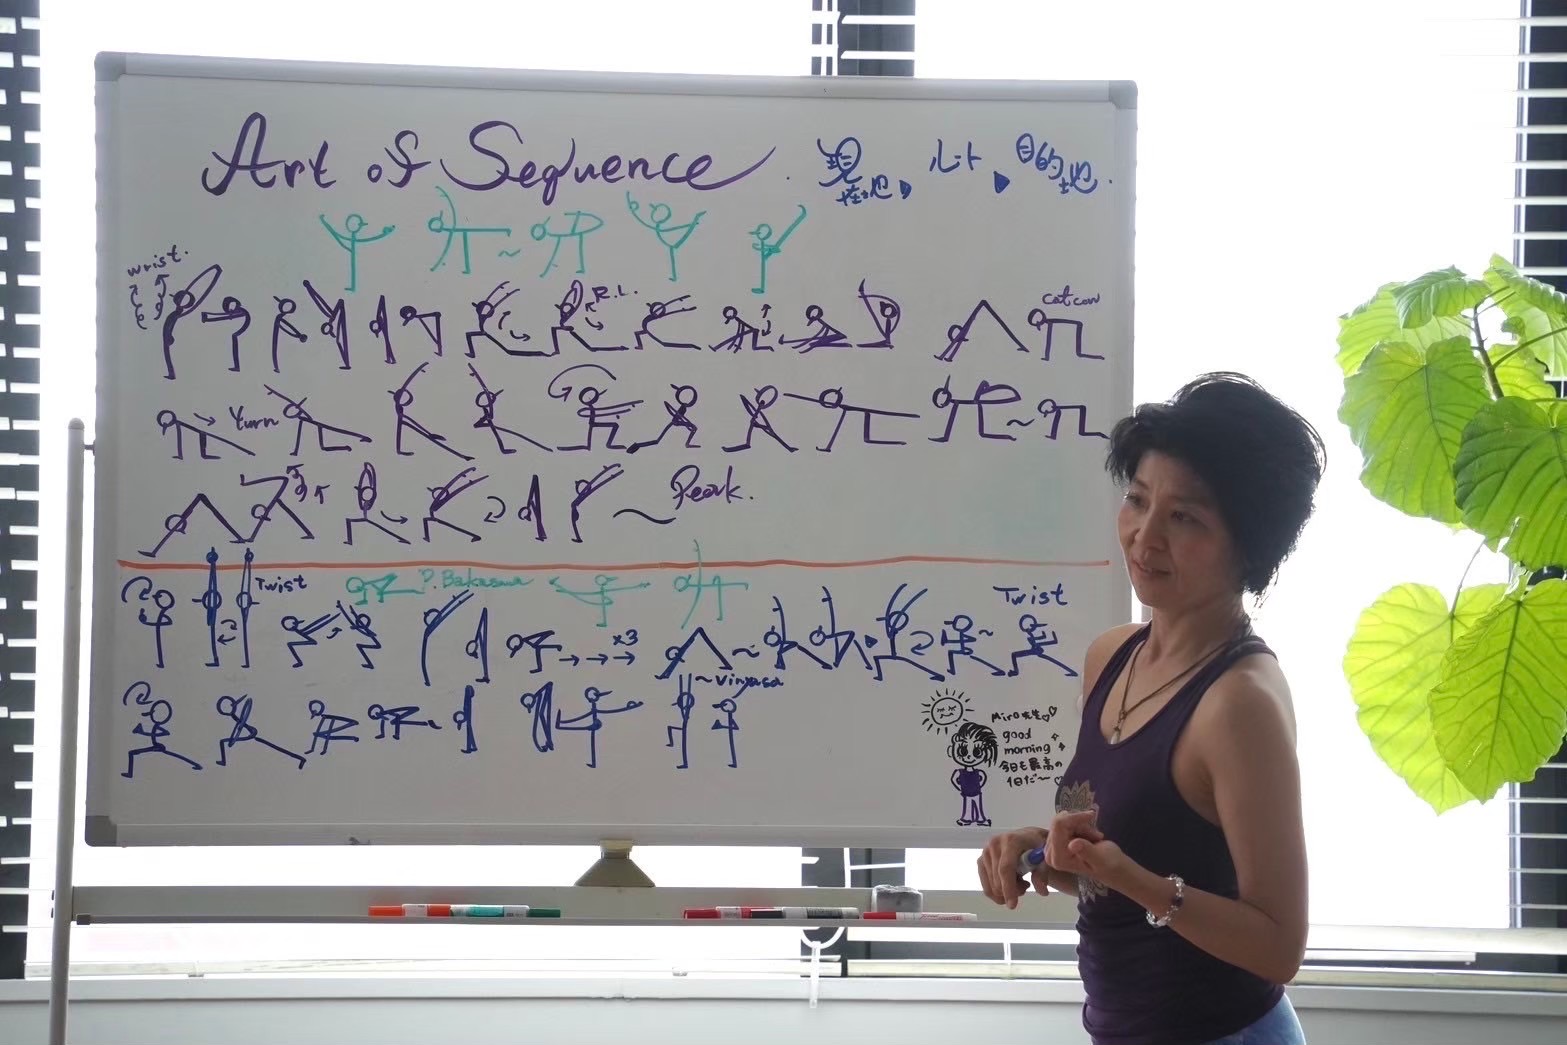 Art of Sequence.
現在地 ▶ 心計 ▶ 目的地.
wrist.
R.L.
Cat cow
turn
~ Peak.
Twist
P. Bakasana
x3
~ Vinyasa
Twist
Miro先生♡♡
good
morning
今日も最高の
1日だ〜♡